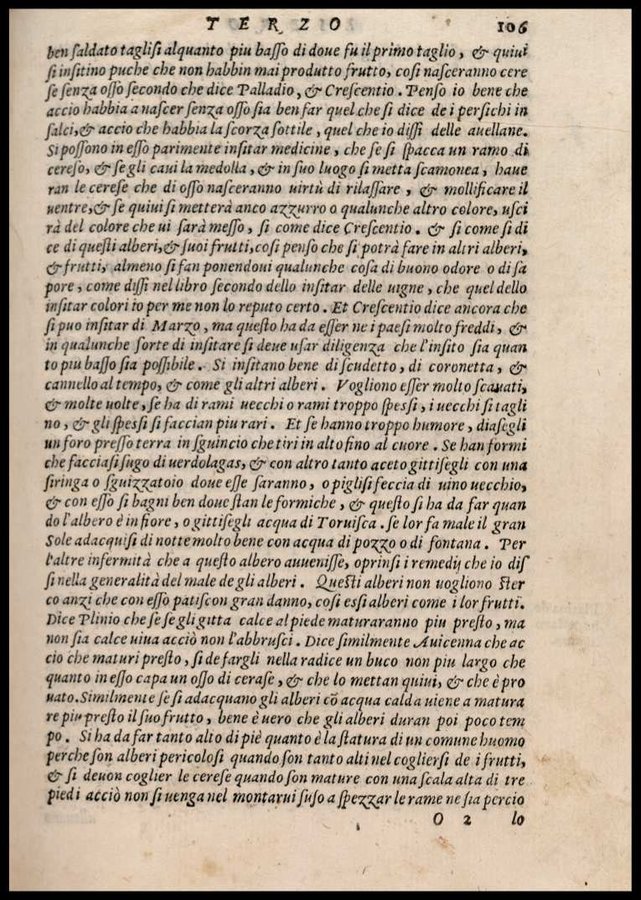 TERZO 106
ben saldato taglisi alquanto piu basso di doue fu il primo taglio, & quiui
si insitino puche che non habbin mai produtto frutto, cosi nasceranno cere
se senza osso secondo che dice Palladio, & Crescentio. Penso io bene che
accio habbia a nascer senza osso sia ben far quel che si dice de i persichi in
salci, & accio che habbia la scorza sottile, quel che io dissi delle auellane.
Si possono in esso parimente insitar medicine, che se si spacca un ramo di
cereso, & se gli caui la medolla, & in suo luogo si metta scamonea, haue
ran le cerese che di osso nasceranno uirtù di rilassare, & mollificare il
uentre, & se quiui si metterà anco azzurro o qualunche altro colore, usci
rà del colore che ui sarà messo, si come dice Crescentio. & si come si di
ce di questi alberi, & suoi frutti, cosi penso che si potrà fare in altri alberi,
& frutti, almeno si fan ponendoui qualunche cosa di buono odore o di sa
pore, come dissi nel libro secondo dello insitar delle uigne, che quel dello
insitar colori io per me non lo reputo certo. Et Crescentio dice ancora che
si puo insitar di Marzo, ma questo ha da esser ne i paesi molto freddi, &
in qualunche sorte di insitare si deue usar diligenza che l'insito sia quan
to piu basso sia possibile. Si insitano bene di scudetto, di coronetta, &
cannello al tempo, & come gli altri alberi. Vogliono esser molto scauati,
& molte uolte, se ha di rami uecchi o rami troppo spessi, i uecchi si tagli
no, & gli spessi si faccian piu rari. Et se hanno troppo humore, diasegli
un foro presso terra in sguincio che tiri in alto fino al cuore. Se han formi
che facciasi sugo di uerdolagas, & con altro tanto aceto gittisegli con una
siringa o sguizzatoio doue esse saranno, o piglisi feccia di uino uecchio,
& con esso si bagni ben doue stan le formiche, & questo si ha da far quan
do l'albero è in fiore, o gittisegli acqua di Toruisca. se lor fa male il gran
Sole adacquisi di notte molto bene con acqua di pozzo o di fontana. Per
l'altre infermità che a questo albero auuenisse, oprinsi i remedij che io dis
si nella generalità del male de gli alberi. Questi alberi non uogliono ster
co anzi che con esso patiscon gran danno, cosi essi alberi come i lor frutti.
Dice Plinio che se se gli gitta calce al piede maturaranno piu presto, ma
non sia calce uiua acciò non l'abbrusci. Dice similmente Auicenna che ac
cio che maturi presto, si de fargli nella radice un buco non piu largo che
quanto in esso capa un osso di cerase, & che lo mettan quiui, & che è pro
uato. Similmente se si adacquano gli alberi cõ acqua calda uiene a matura
re piu presto il suo frutto, bene è uero che gli alberi duran poi poco tem
po. Si ha da far tanto alto di piè quanto è la statura di un comune huomo
perche son alberi pericolosi quando son tanto alti nel cogliersi de i frutti,
& si deuon coglier le cerese quando son mature con una scala alta di tre
piedi acciò non si uenga nel montarui suso a spezzar le rame ne sia percio
O 2 lo